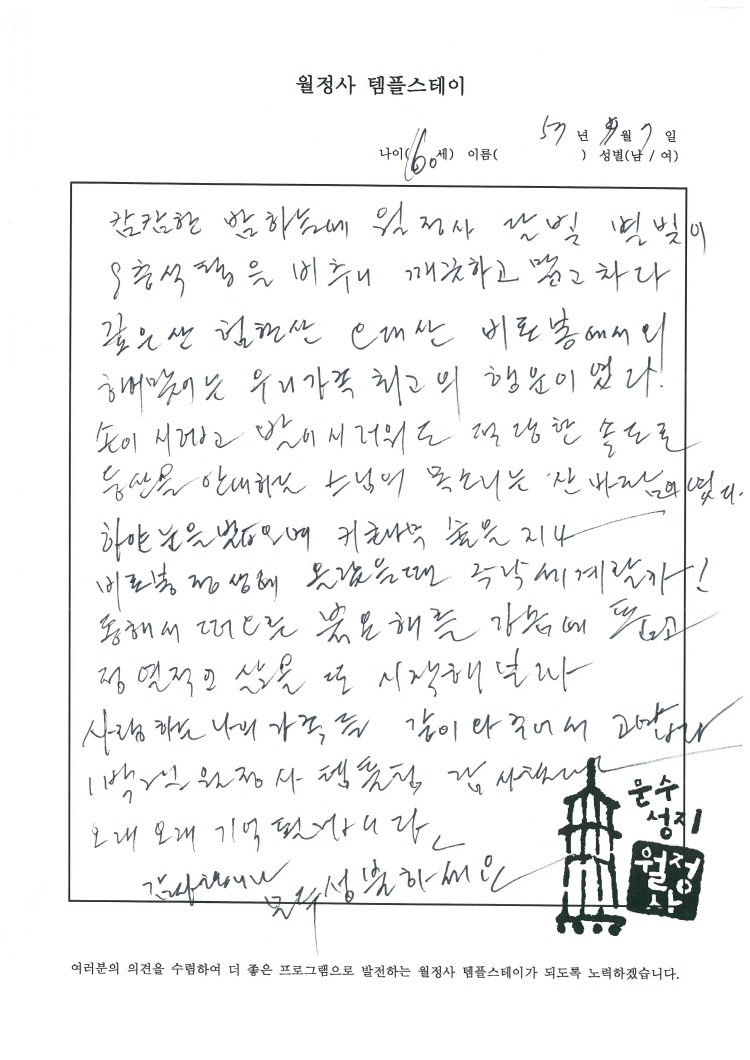 월정사 템플스테이
57 년 월 7 일
나이(60세) 이름( ) 성별(남 / 여)
캄캄한 밤하늘에 월정사 달빛 별빛이
9층석탑을 비추니 깨끗하고 맑고 차다
깊은산 험한산 오대산 비로봉에서의
해맞이는 우리가족 최고의 행운이였다!
손이 시려웁고 발이시려워도 적당한 속도로
등산을 안내하는 스님의 목소리는 산바람 였다.
하얀눈을 밟으며 키큰나무 숲을 지나
비로봉 정상에 올랐을때 극락세계랄까!
동해서 떠오른 붉은해를 가슴에 품고
정열적인 삶을 또 시작해 볼라
사랑하는 나의 가족들 같이 와 주어서 고맙다
1박2일 월정사 템플팀 감사합니다
오래 오래 기억될겁니다
감사합니다 모두 성불하세요
문수
성지
월정
사
여러분의 의견을 수렴하여 더 좋은 프로그램으로 발전하는 월정사 템플스테이가 되도록 노력하겠습니다.